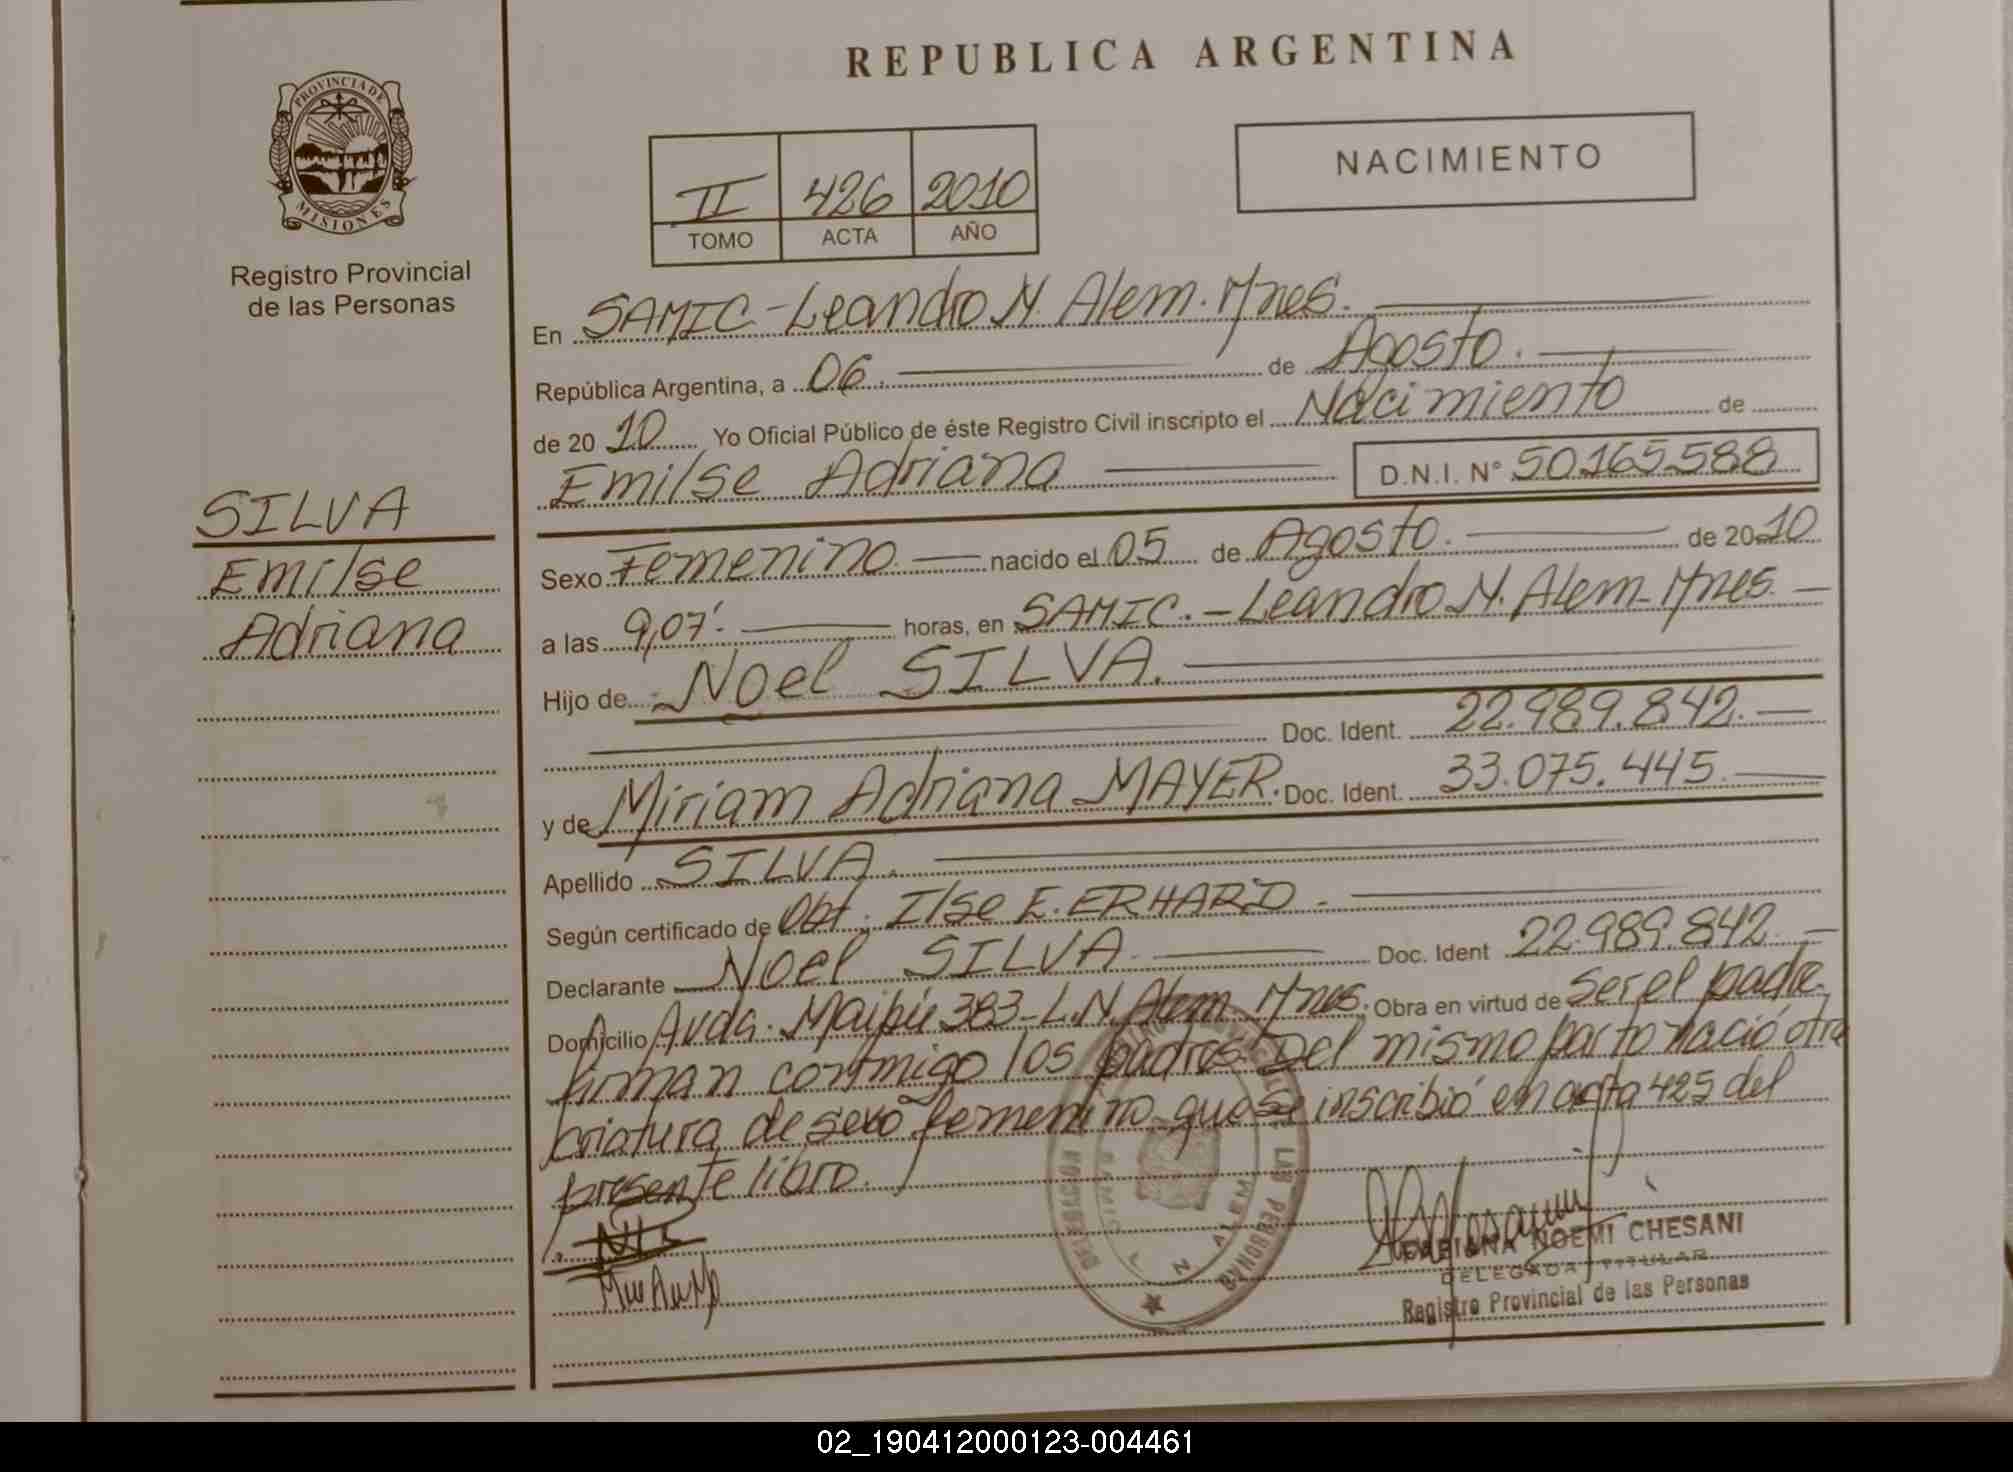 REPUBLICA ARGENTINA
PROVINCIA DE
MISIONES
Registro Provincial
de las Personas
NACIMIENTO
II 426 2010
TOMO ACTA AÑO
En SAMIC - Leandro N. Alem. Mnes.
República Argentina, a 06. de Agosto.
de 2010 Yo Oficial Público de éste Registro Civil inscripto el Nacimiento de
Emilse Adriana D.N.I. N° 50165588
SILVA
Emilse
Adriana
Sexo Femenino. nacido el 05 de Agosto. de 2010
a las 9,07'. horas, en SAMIC. - Leandro N. Alem - Mnes. -
Hijo de Noel SILVA.
Doc. Ident. 22.989.842. -
y de Miriam Adriana MAYER. Doc. Ident. 33.075.445. -
Apellido SILVA.
Según certificado de Obt. Ilse E. ERHARD. -
Declarante Noel SILVA. Doc. Ident 22.989.842. -
Domicilio Avda. Maipú 383 - L.N. Alem Mnes. Obra en virtud de ser el padre,
firman conmigo los padres. Del mismo parto nació otra
criatura de sexo femenino que se inscribió en acta 425 del
presente libro.
DELEGACION LAS PERSONAS
SAMIC
L N ALEM
FABIANA NOEMI CHESANI
DELEGADA TITULAR
Registro Provincial de las Personas
02_190412000123-004461